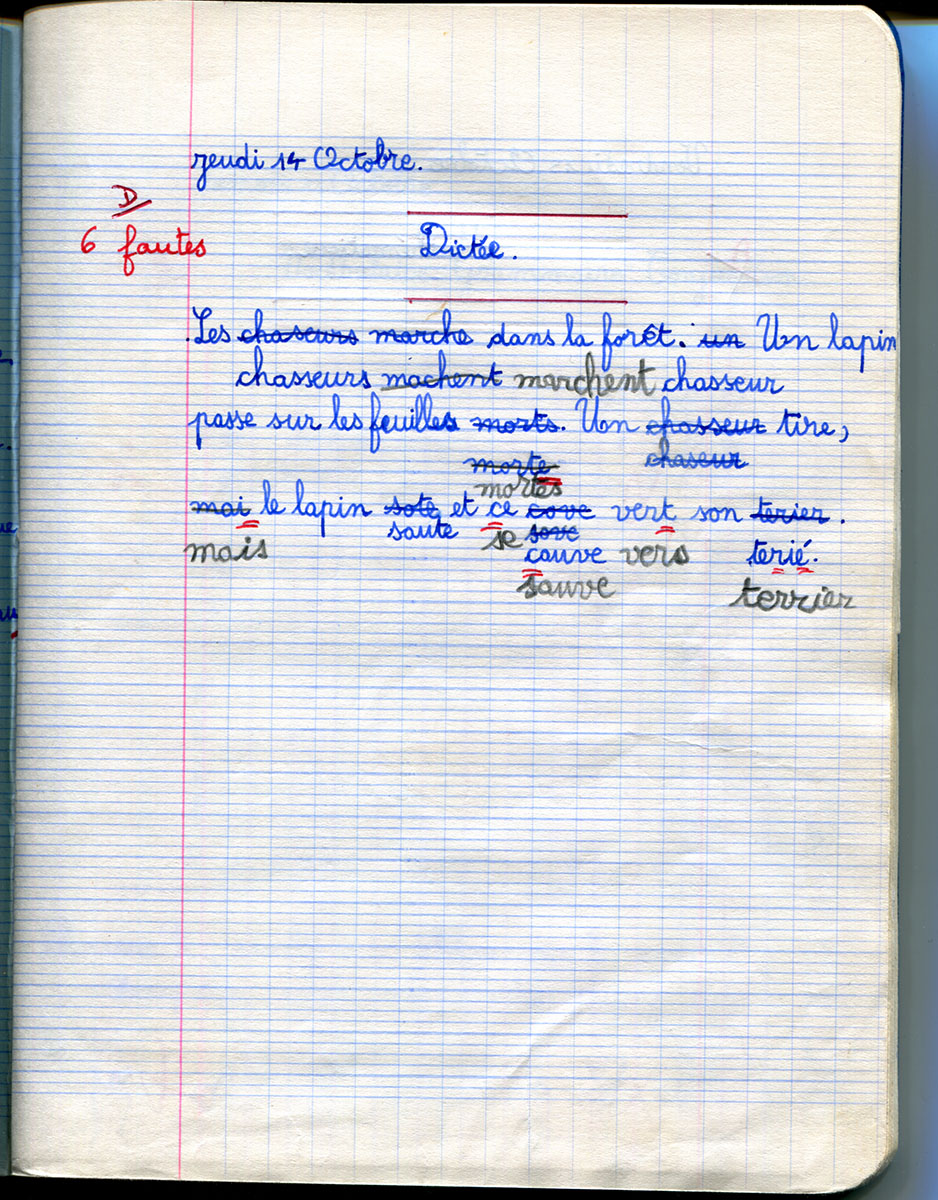 jeudi 14 Octobre.
D
6 fautes
Dictée.
Les chaseurs marche dans la forêt. un Un lapin
chasseurs machent marchent chasseur
passe sur les feuilles morts. Un chasseur tire,
morte chaseur
mortes
mai le lapin sote et ce cove vert son terier.
saute se sove
mais cauve vers terié.
sauve terrier